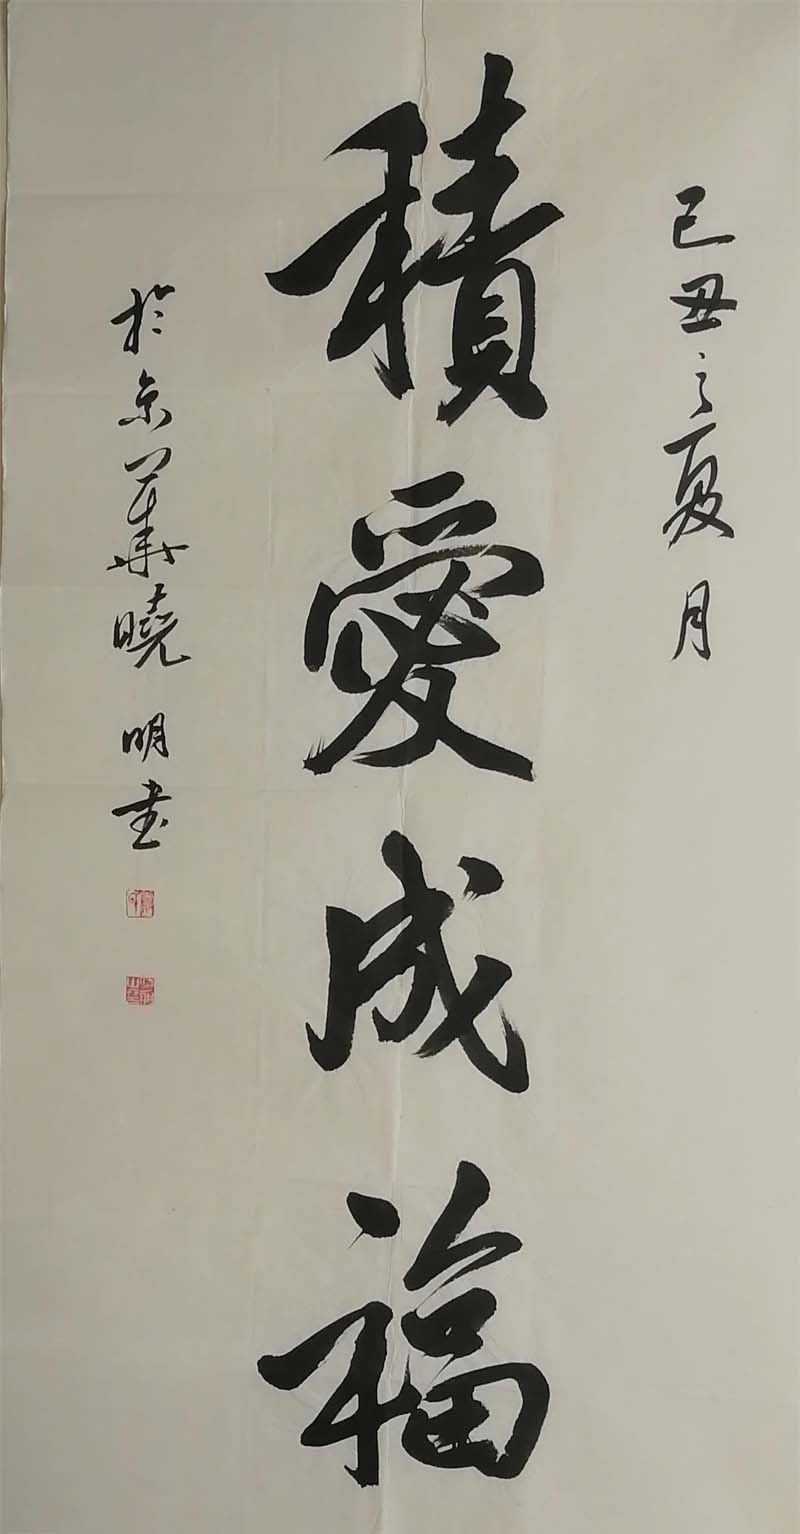 己丑之夏月
積愛成福
於京華曉明书